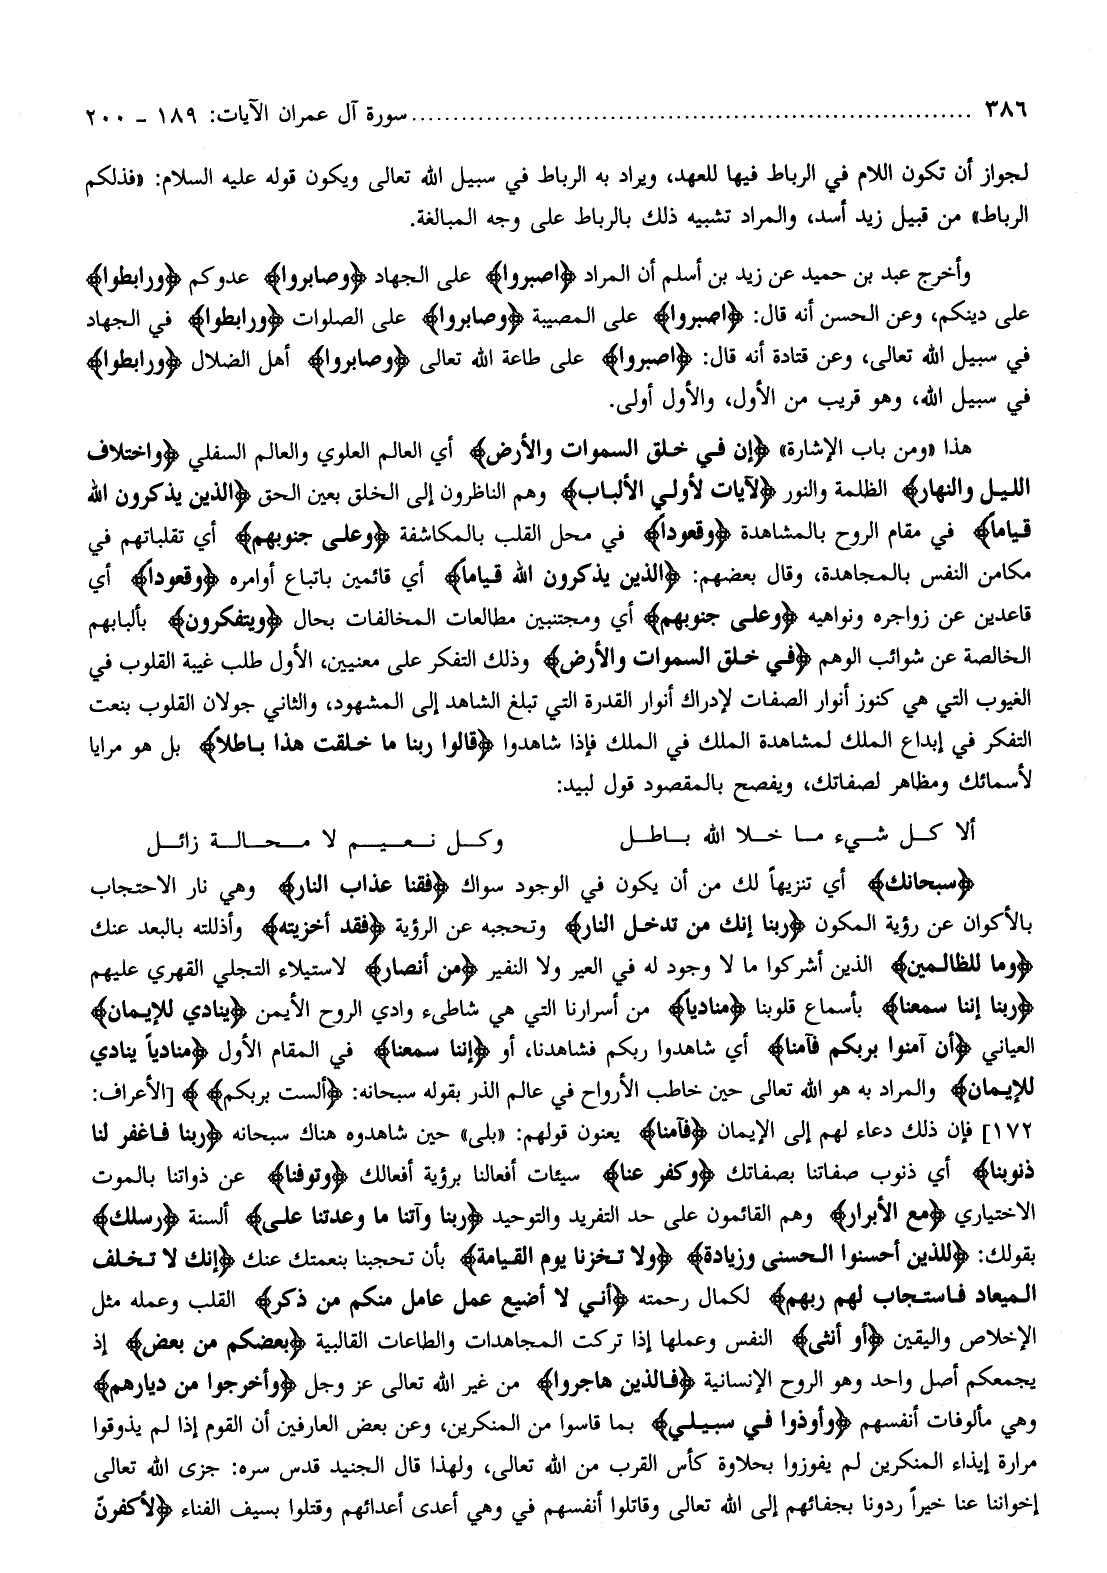 ٣٨٦ ........................................................ سورة آل عمران الآيات: ١٨٩ - ٢٠٠
لجواز أن تكون اللام في الرباط فيها للعهد، ويراد به الرباط في سبيل الله تعالى ويكون قوله عليه السلام: «فذلكم
الرباط» من قبيل زيد أسد، والمراد تشبيه ذلك بالرباط على وجه المبالغة.
وأخرج عبد بن حميد عن زيد بن أسلم أن المراد ﴿اصبروا﴾ على الجهاد ﴿وصابروا﴾ عدوكم ﴿ورابطوا﴾
على دينكم، وعن الحسن أنه قال: ﴿اصبروا﴾ على المصيبة ﴿وصابروا﴾ على الصلوات ﴿ورابطوا﴾ في الجهاد
في سبيل الله تعالى، وعن قتادة أنه قال: ﴿اصبروا﴾ على طاعة الله تعالى ﴿وصابروا﴾ أهل الضلال ﴿ورابطوا﴾
في سبيل الله، وهو قريب من الأول، والأول أولى.
هذا «ومن باب الإشارة» ﴿إن في خلق السموات والأرض﴾ أي العالم العلوي والعالم السفلي ﴿واختلاف
الليل والنهار﴾ الظلمة والنور ﴿لآيات لأولي الألباب﴾ وهم الناظرون إلى الخلق بعين الحق ﴿الذين يذكرون الله
قياماً﴾ في مقام الروح بالمشاهدة ﴿وقعوداً﴾ في محل القلب بالمكاشفة ﴿وعلى جنوبهم﴾ أي تقلباتهم في
مكامن النفس بالمجاهدة، وقال بعضهم: ﴿الذين يذكرون الله قياماً﴾ أي قائمين باتباع أوامره ﴿وقعوداً﴾ أي
قاعدين عن زواجره ونواهيه ﴿وعلى جنوبهم﴾ أي ومجتنبين مطالعات المخالفات بحال ﴿ويتفكرون﴾ بألبابهم
الخالصة عن شوائب الوهم ﴿في خلق السموات والأرض﴾ وذلك التفكر على معنيين، الأول طلب غيبة القلوب في
الغيوب التي هي كنوز أنوار الصفات لإدراك أنوار القدرة التي تبلغ الشاهد إلى المشهود، والثاني جولان القلوب بنعت
التفكر في إبداع الملك لمشاهدة الملك في الملك فإذا شاهدوا ﴿قالوا ربنا ما خلقت هذا باطلاً﴾ بل هو مرايا
لأسمائك ومظاهر لصفاتك، ويفصح بالمقصود قول لبيد:
ألا كل شيء ما خلا الله باطل وكل نعيم لا محالة زائل
﴿سبحانك﴾ أي تنزيهاً لك من أن يكون في الوجود سواك ﴿فقنا عذاب النار﴾ وهي نار الاحتجاب
بالأكوان عن رؤية المكون ﴿ربنا إنك من تدخل النار﴾ وتحجبه عن الرؤية ﴿فقد أخزيته﴾ وأذللته بالبعد عنك
﴿وما للظالمين﴾ الذين أشركوا ما لا وجود له في العير ولا النفير ﴿من أنصار﴾ لاستيلاء التجلي القهري عليهم
﴿ربنا إننا سمعنا﴾ بأسماع قلوبنا ﴿منادياً﴾ من أسرارنا التي هي شاطىء وادي الروح الأيمن ﴿ينادي للإيمان﴾
العياني ﴿أن آمنوا بربكم فآمنا﴾ أي شاهدوا ربكم فشاهدنا، أو ﴿إننا سمعنا﴾ في المقام الأول ﴿منادياً ينادي
للإيمان﴾ والمراد به هو الله تعالى حين خاطب الأرواح في عالم الذر بقوله سبحانه: ﴿ألست بربكم﴾ ﴾ [الأعراف:
١٧٢] فإن ذلك دعاء لهم إلى الإيمان ﴿فآمنا﴾ يعنون قولهم: «بلى» حين شاهدوه هناك سبحانه ﴿ربنا فاغفر لنا
ذنوبنا﴾ أي ذنوب صفاتنا بصفاتك ﴿وكفر عنا﴾ سيئات أفعالنا برؤية أفعالك ﴿وتوفنا﴾ عن ذواتنا بالموت
الاختياري ﴿مع الأبرار﴾ وهم القائمون على حد التفريد والتوحيد ﴿ربنا وآتنا ما وعدتنا على﴾ ألسنة ﴿رسلك﴾
بقولك: ﴿للذين أحسنوا الحسنى وزيادة﴾ ﴿ولا تخزنا يوم القيامة﴾ بأن تحجبنا بنعمتك عنك ﴿إنك لا تخلف
الميعاد فاستجاب لهم ربهم﴾ لكمال رحمته ﴿أني لا أضيع عمل عامل منكم من ذكر﴾ القلب وعمله مثل
الإخلاص واليقين ﴿أو أنثى﴾ النفس وعملها إذا تركت المجاهدات والطاعات القالبية ﴿بعضكم من بعض﴾ إذ
يجمعكم أصل واحد وهو الروح الإنسانية ﴿فالذين هاجروا﴾ من غير الله تعالى عز وجل ﴿وأخرجوا من ديارهم﴾
وهي مألوفات أنفسهم ﴿وأوذوا في سبيلي﴾ بما قاسوا من المنكرين، وعن بعض العارفين أن القوم إذا لم يذوقوا
مرارة إيذاء المنكرين لم يفوزوا بحلاوة كأس القرب من الله تعالى، ولهذا قال الجنيد قدس سره: جزى الله تعالى
إخواننا عنا خيراً ردونا بجفائهم إلى الله تعالى وقاتلوا أنفسهم في وهي أعدى أعدائهم وقتلوا بسيف الفناء ﴿لأكفرنّ